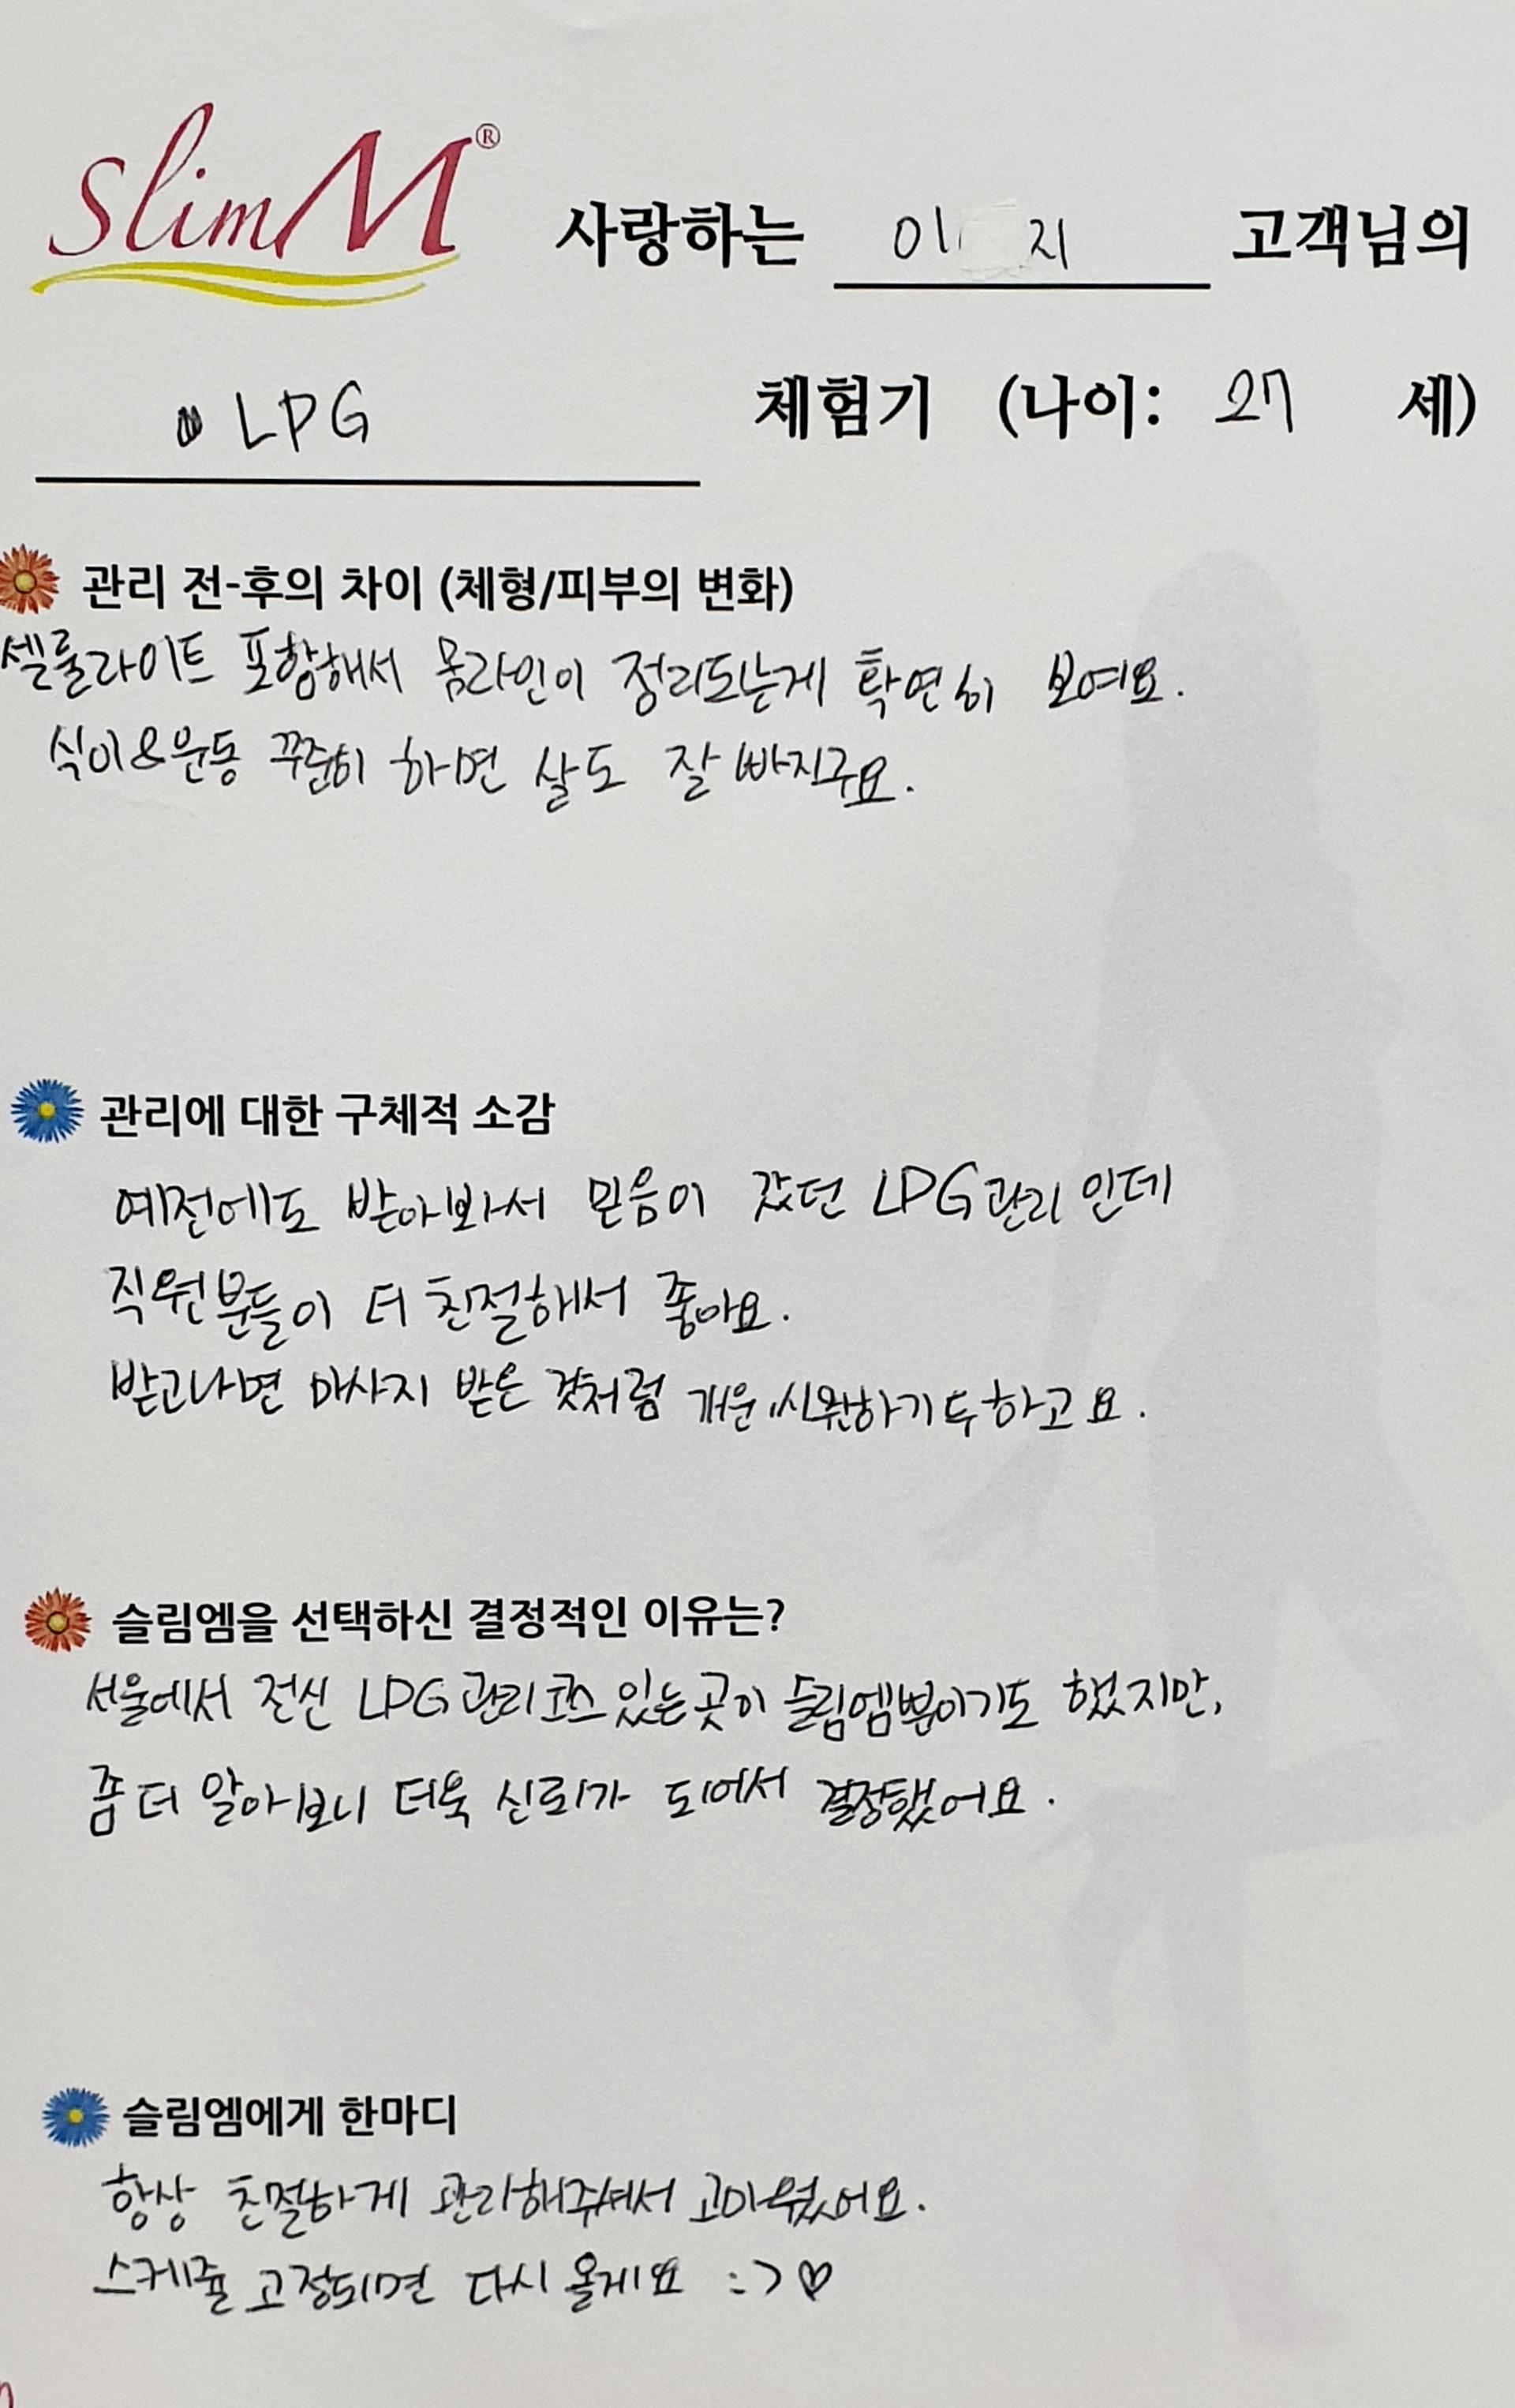 slimM® 사랑하는 이 지 고객님의
LPG 체험기 (나이: 27 세)
관리 전-후의 차이 (체형/피부의 변화)
셀룰라이트 포함해서 몸라인이 정리되는게 확연히 보여요.
식이&운동 꾸준히 하면 살도 잘 빠지구요.
관리에 대한 구체적 소감
예전에도 받아봐서 믿음이 갔던 LPG관리 인데
직원분들이 더 친절해서 좋아요.
받고나면 마사지 받은 것처럼 개운,시원하기두하고요.
슬림엠을 선택하신 결정적인 이유는?
서울에서 전신 LPG관리코스있는곳이 슬림엠뿐이기도 했지만,
좀 더 알아보니 더욱 신뢰가 되어서 결정했어요.
슬림엠에게 한마디
항상 친절하게 관리해주셔서 고마웠어요.
스케쥴 고정되면 다시 올게요 :>♡